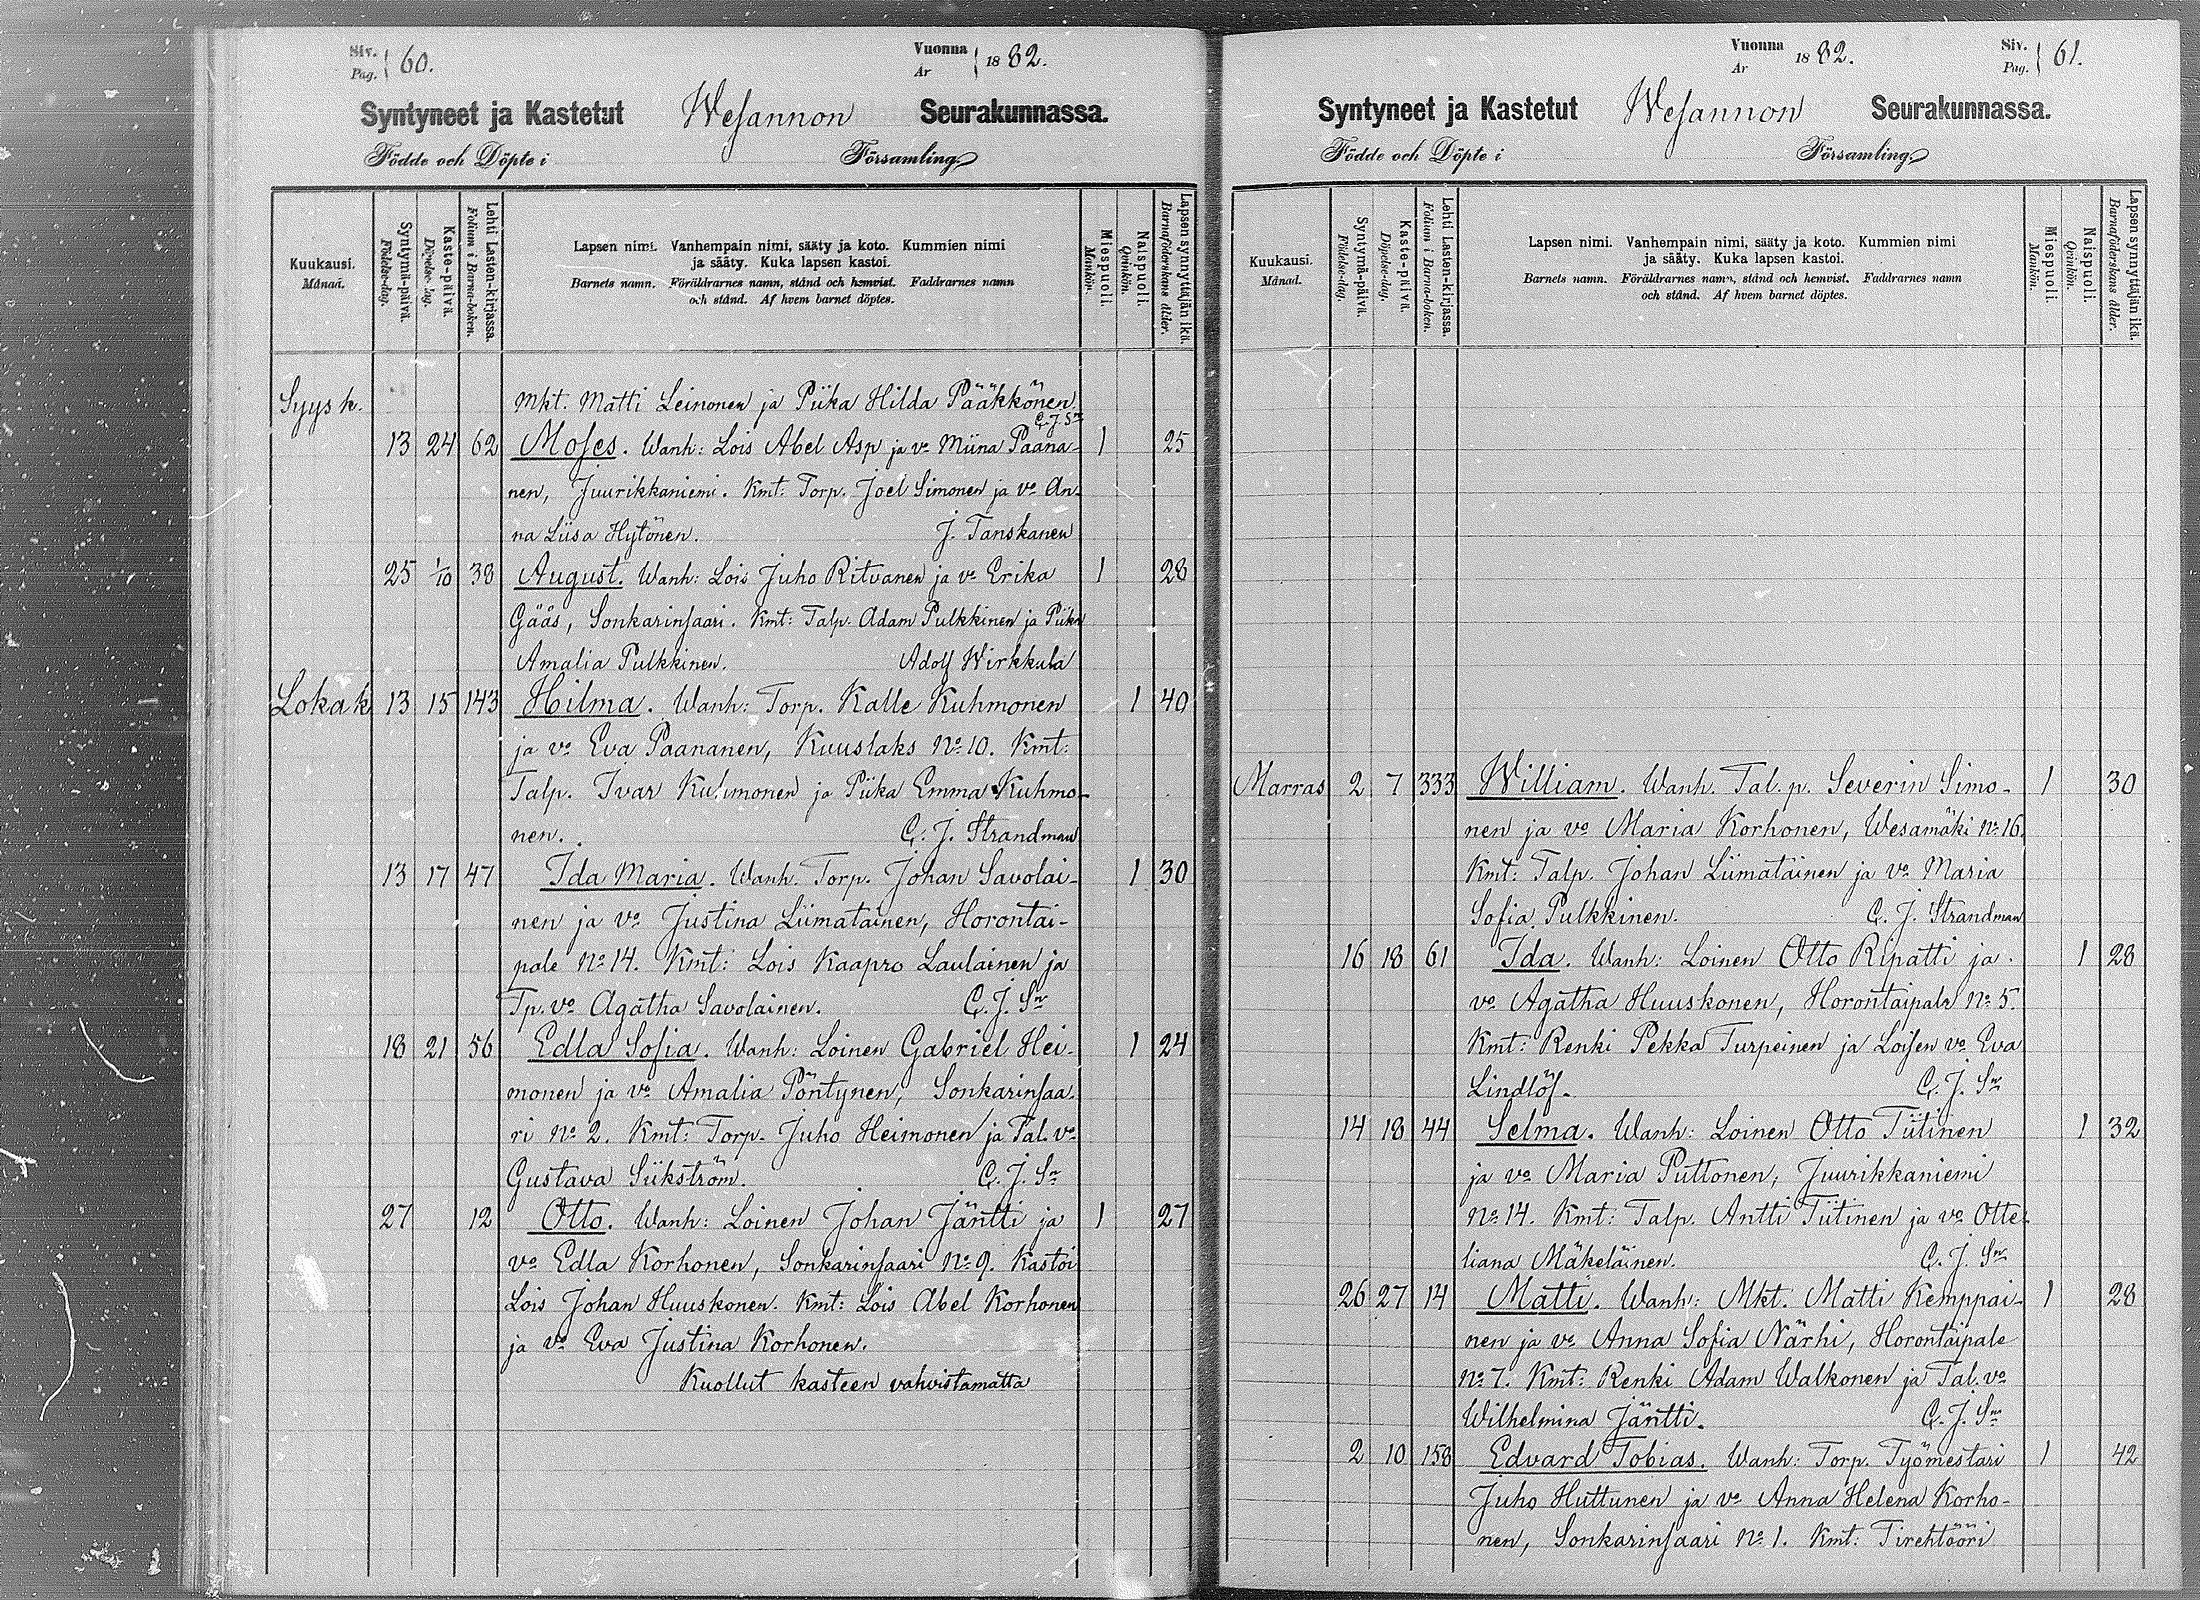 Siv. Pag. 60.
Vuonna År 1882.
Syntyneet ja Kastetut Wesannon Seurakunnassa.
Födde och Döpte i Församling.
Kuukausi. Månad.
Syntymä-päivä. Födelse-dag.
Kaste-päivä. Döpelse-dag.
Lehti Lasten-kirjassa. Folium i Barna-boken.
Lapsen nimi. Vanhempain nimi, sääty ja koto. Kummien nimi
ja sääty. Kuka lapsen kastoi.
Barnets namn. Föräldrarnes namn, stånd och hemvist. Faddrarnes namn
och stånd. Af hvem barnet döptes.
Miespuoli. Mankön.
Naispuoli. Qvinkön.
Lapsen synnyttäjän ikä. Barnaföderskans ålder.
Syysk. Mkt. Matti Leinonen ja Piika Hilda Pääkkönen
C. J. Sn
13 24 62 Moses. Wanh: Lois Abel Asp ja vo Miina Paana- 1 25
nen, Juurikkaniemi. Kmt: Torp. Joel Simonen ja vo An-
na Liisa Hytönen. J. Tanskanen
25 1/10 38 August. Wanh: Lois Juho Ritvanen ja vo Erika 1 28
Gåås, Sonkarinsaari. Kmt: Talp. Adam Pulkkinen ja Piika
Amalia Pulkkinen. Adolf Wirkkula
Lokak 13 15 143 Hilma. Wanh: Torp. Kalle Kuhmonen 1 40
ja vo Eva Paananen, Kuuslaks No 10. Kmt:
Talp. Ivar Kuhmonen ja Piika Emma Kuhmo-
nen. C. J. Strandman
13 17 47 Ida Maria. Wanh. Torp. Johan Savolai- 1 30
nen ja vo Justina Liimatainen, Horontai-
pale No 14. Kmt: Lois Kaapro Laulainen ja
Tp. vo Agatha Savolainen. C. J. Sn
18 21 56 Edla Sofia. Wanh: Loinen Gabriel Hei- 1 24
monen ja vo Amalia Pöntynen, Sonkarinsaa-
ri No 2. Kmt: Torp. Juho Heimonen ja Tal. vo
Gustava Siikström. C. J. Sn
27 12 Otto. Wanh: Loinen Johan Jäntti ja 1 27
vo Edla Korhonen, Sonkarinsaari No 9. Kastoi
Lois Johan Huuskonen. Kmt: Lois Abel Korhonen
ja vo Eva Justina Korhonen.
Kuollut kasteen vahvistamatta
Vuonna År 1882.
Siv. Pag. 61.
Syntyneet ja Kastetut Wesannon Seurakunnassa.
Födde och Döpte i Församling.
Kuukausi. Månad.
Syntymä-päivä. Födelse-dag.
Kaste-päivä. Döpelse-dag.
Lehti Lasten-kirjassa. Folium i Barna-boken.
Lapsen nimi. Vanhempain nimi, sääty ja koto. Kummien nimi
ja sääty. Kuka lapsen kastoi.
Barnets namn. Föräldrarnes namn, stånd och hemvist. Faddrarnes namn
och stånd. Af hvem barnet döptes.
Miespuoli. Mankön.
Naispuoli. Qvinkön.
Lapsen synnyttäjän ikä. Barnaföderskans ålder.
Marras 2 7 333 William. Wanh. Tal. p. Severin Simo- 1 30
nen ja vo Maria Korhonen, Wesamäki No 16.
Kmt: Talp. Johan Liimatainen ja vo Maria
Sofia Pulkkinen. C. J. Strandman
16 18 61 Ida. Wanh: Loinen Otto Ripatti ja 1 28
vo Agatha Huuskonen, Horontaipale No 5.
Kmt: Renki Pekka Turpeinen ja Loisen vo Eva
Lindlöf. C. J. Sn
14 18 44 Selma. Wanh: Loinen Otto Tiitinen 1 32
ja vo Maria Puttonen, Juurikkaniemi
No 14. Kmt: Talp. Antti Tiitinen ja vo Otte-
liana Mäkeläinen. C. J. Sn
26 27 14 Matti. Wanh: Mkt. Matti Kemppai- 1 28
nen ja vo Anna Sofia Närhi, Horontaipale
No 7. Kmt: Renki Adam Walkonen ja Tal. vo
Wilhelmina Jäntti. C. J. Sn
2 10 158 Edvard Tobias. Wanh: Torp. Työmestari 1 42
Juho Huttunen ja vo Anna Helena Korho-
nen, Sonkarinsaari No 1. Kmt: Tirehtööri